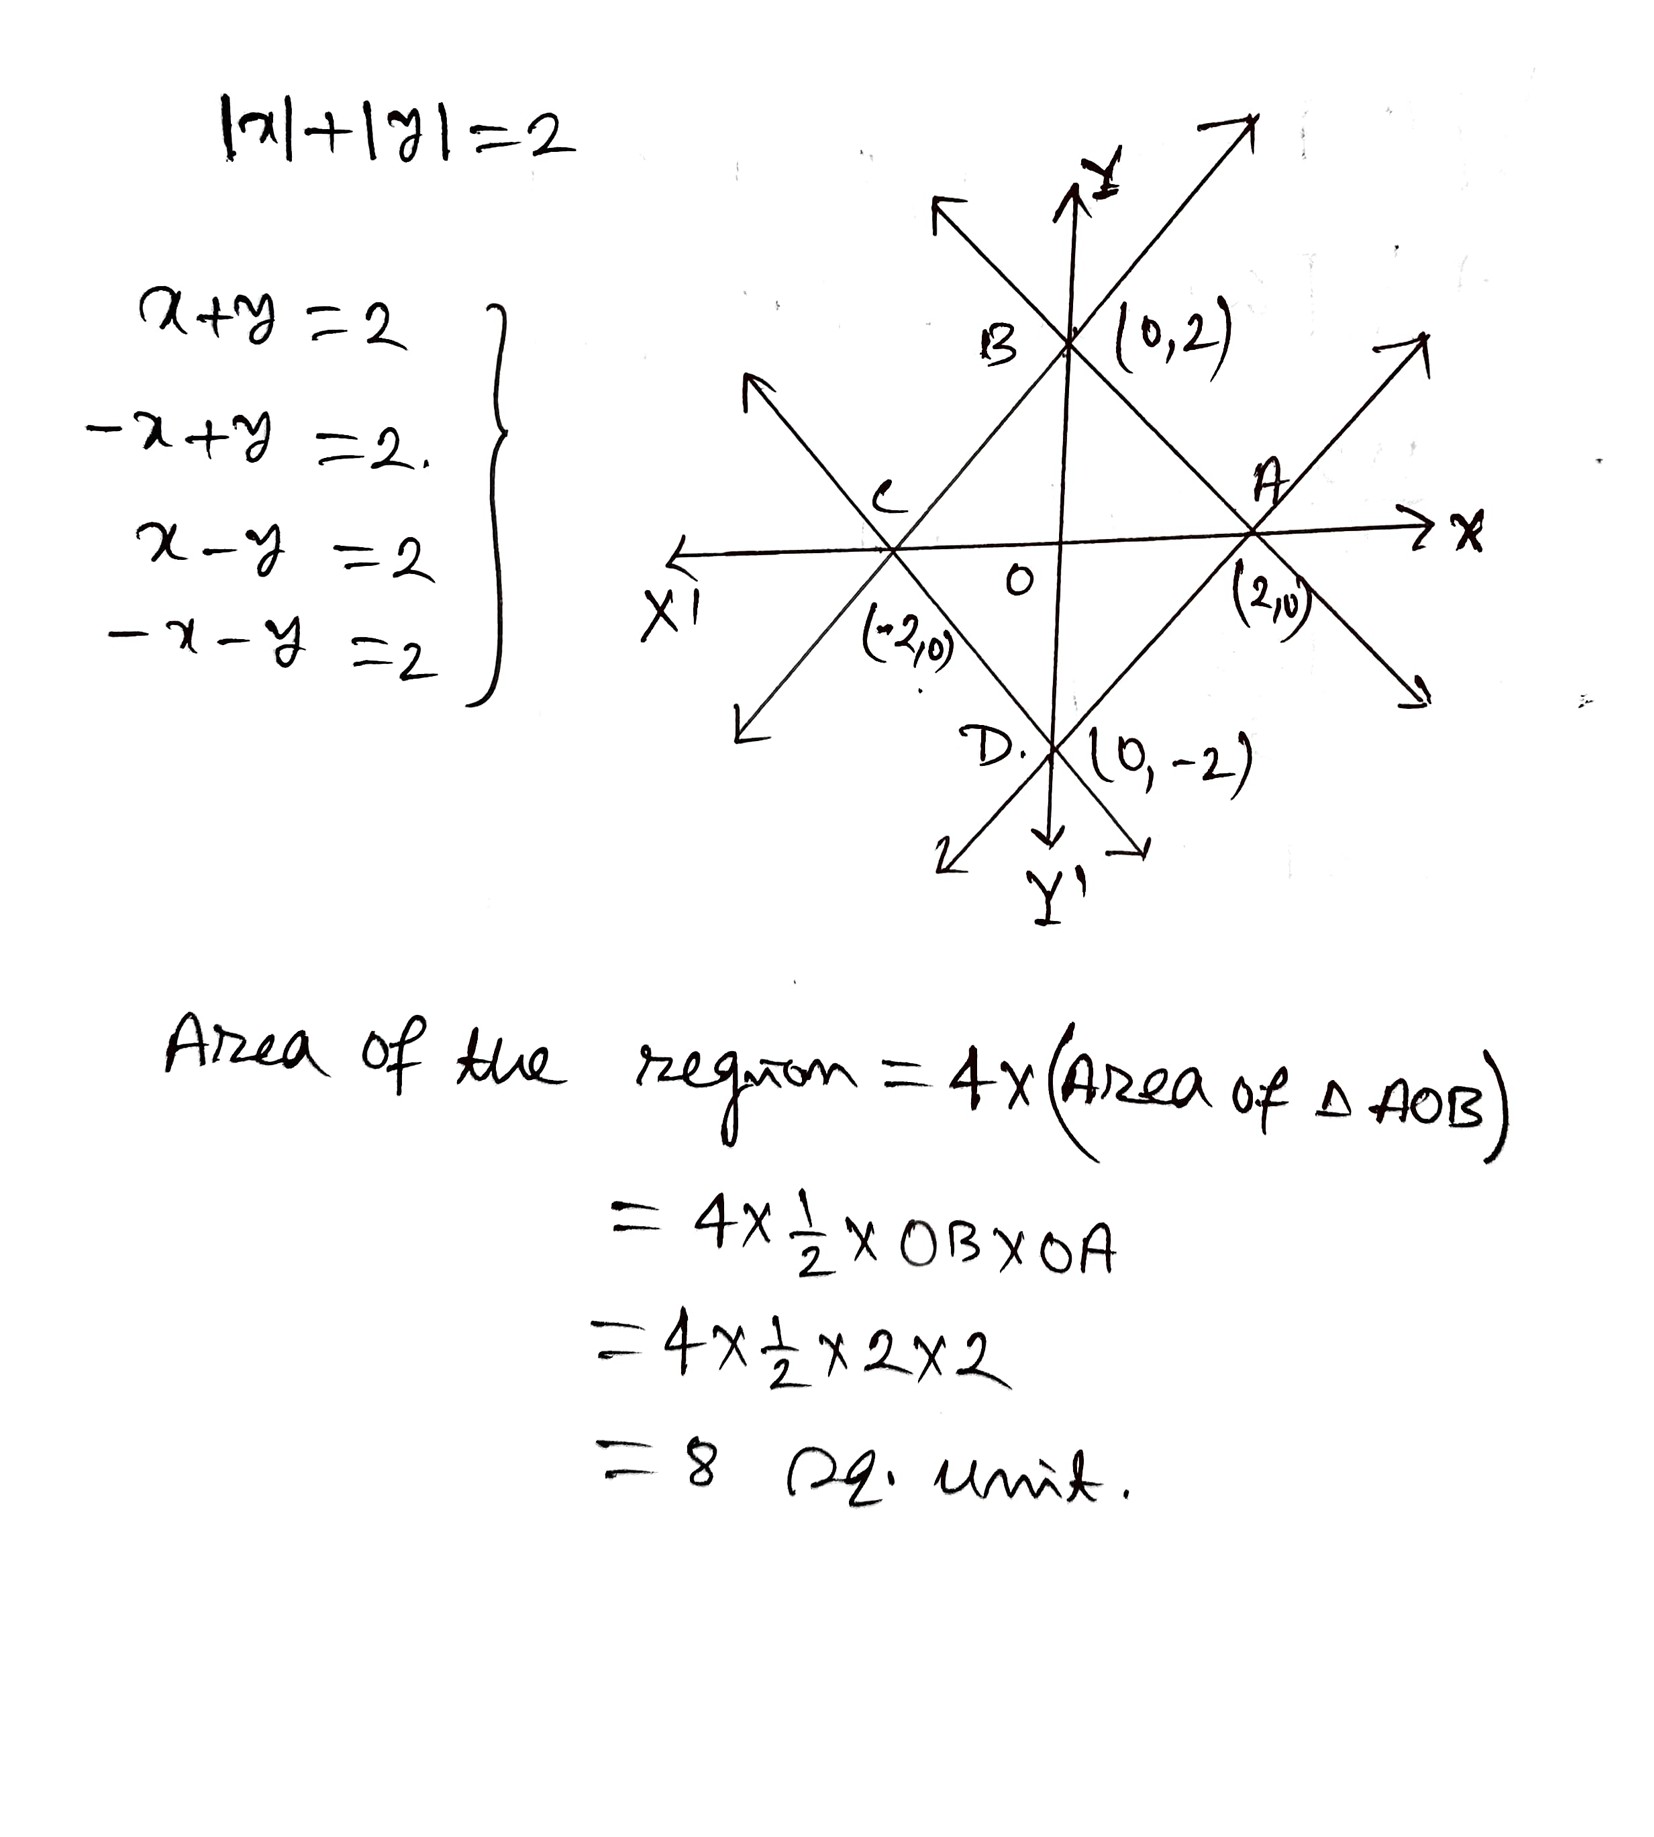 |x|+|y|=2
x+y=2
-x+y=2.
x-y=2
-x-y=2
Y
B (0,2)
C
A
X
X'
O
(-2,0)
(2,0)
D. (0,-2)
Y'
Area of the region = 4×(Area of △ AOB)
= 4×1/2×OB×OA
=4×1/2×2×2
= 8 sq. unit.